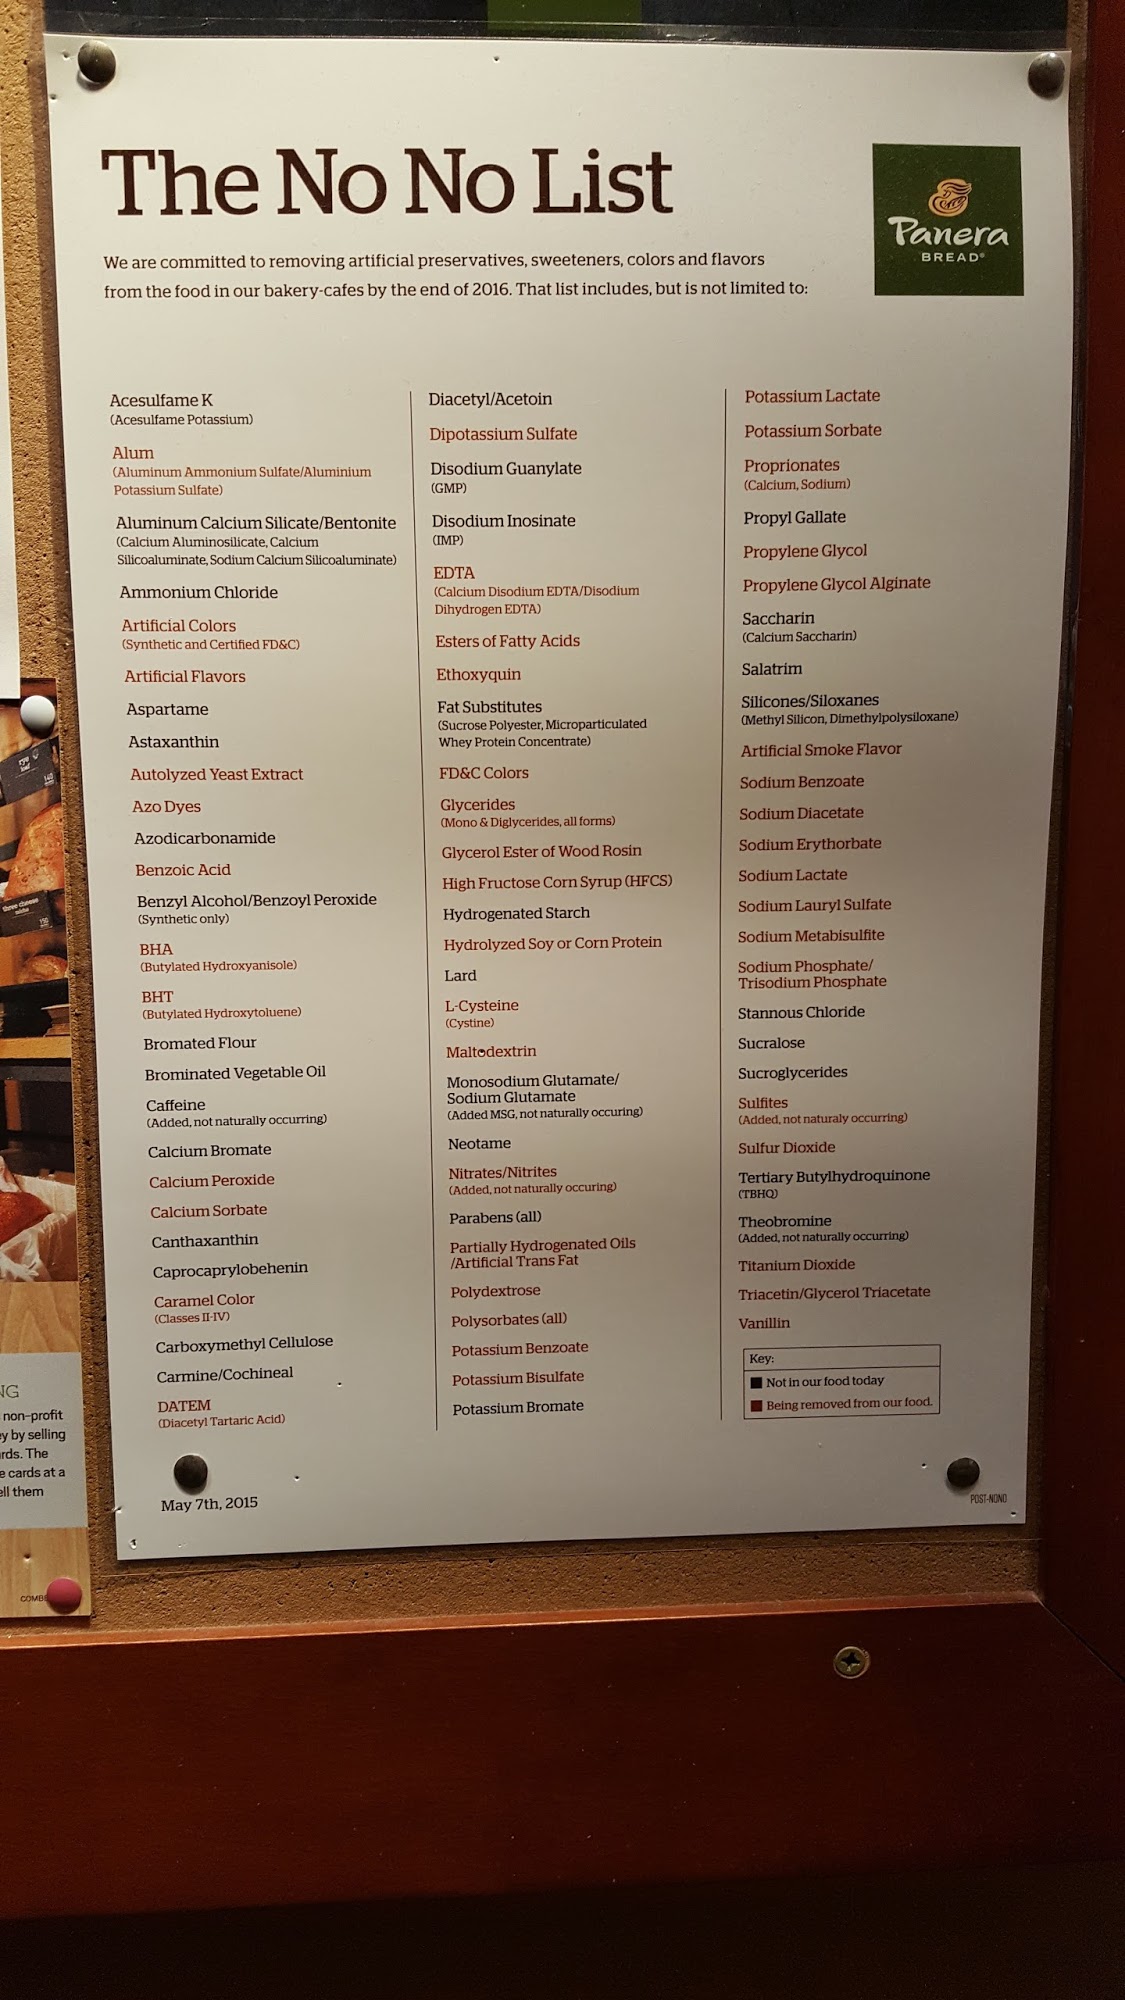 The No No List
Panera
BREAD®
We are committed to removing artificial preservatives, sweeteners, colors and flavors
from the food in our bakery-cafes by the end of 2016. That list includes, but is not limited to:
Acesulfame K
(Acesulfame Potassium)
Alum
(Aluminum Ammonium Sulfate/Aluminium
Potassium Sulfate)
Aluminum Calcium Silicate/Bentonite
(Calcium Aluminosilicate, Calcium
Silicoaluminate, Sodium Calcium Silicoaluminate)
Ammonium Chloride
Artificial Colors
(Synthetic and Certified FD&C)
Artificial Flavors
Aspartame
Astaxanthin
Autolyzed Yeast Extract
Azo Dyes
Azodicarbonamide
Benzoic Acid
Benzyl Alcohol/Benzoyl Peroxide
(Synthetic only)
BHA
(Butylated Hydroxyanisole)
BHT
(Butylated Hydroxytoluene)
Bromated Flour
Brominated Vegetable Oil
Caffeine
(Added, not naturally occurring)
Calcium Bromate
Calcium Peroxide
Calcium Sorbate
Canthaxanthin
Caprocaprylobehenin
Caramel Color
(Classes II-IV)
Carboxymethyl Cellulose
Carmine/Cochineal
DATEM
(Diacetyl Tartaric Acid)
Diacetyl/Acetoin
Dipotassium Sulfate
Disodium Guanylate
(GMP)
Disodium Inosinate
(IMP)
EDTA
(Calcium Disodium EDTA/Disodium
Dihydrogen EDTA)
Esters of Fatty Acids
Ethoxyquin
Fat Substitutes
(Sucrose Polyester, Microparticulated
Whey Protein Concentrate)
FD&C Colors
Glycerides
(Mono & Diglycerides, all forms)
Glycerol Ester of Wood Rosin
High Fructose Corn Syrup (HFCS)
Hydrogenated Starch
Hydrolyzed Soy or Corn Protein
Lard
L-Cysteine
(Cystine)
Maltodextrin
Monosodium Glutamate/
Sodium Glutamate
(Added MSG, not naturally occuring)
Neotame
Nitrates/Nitrites
(Added, not naturally occuring)
Parabens (all)
Partially Hydrogenated Oils
/Artificial Trans Fat
Polydextrose
Polysorbates (all)
Potassium Benzoate
Potassium Bisulfate
Potassium Bromate
Potassium Lactate
Potassium Sorbate
Proprionates
(Calcium, Sodium)
Propyl Gallate
Propylene Glycol
Propylene Glycol Alginate
Saccharin
(Calcium Saccharin)
Salatrim
Silicones/Siloxanes
(Methyl Silicon, Dimethylpolysiloxane)
Artificial Smoke Flavor
Sodium Benzoate
Sodium Diacetate
Sodium Erythorbate
Sodium Lactate
Sodium Lauryl Sulfate
Sodium Metabisulfite
Sodium Phosphate/
Trisodium Phosphate
Stannous Chloride
Sucralose
Sucroglycerides
Sulfites
(Added, not naturaly occurring)
Sulfur Dioxide
Tertiary Butylhydroquinone
(TBHQ)
Theobromine
(Added, not naturally occurring)
Titanium Dioxide
Triacetin/Glycerol Triacetate
Vanillin
Key:
Not in our food today
Being removed from our food.
May 7th, 2015
POST-NONO
rye
loaf
140
three cheese
miche
150
NG
non-profit
y by selling
rds. The
e cards at a
ell them